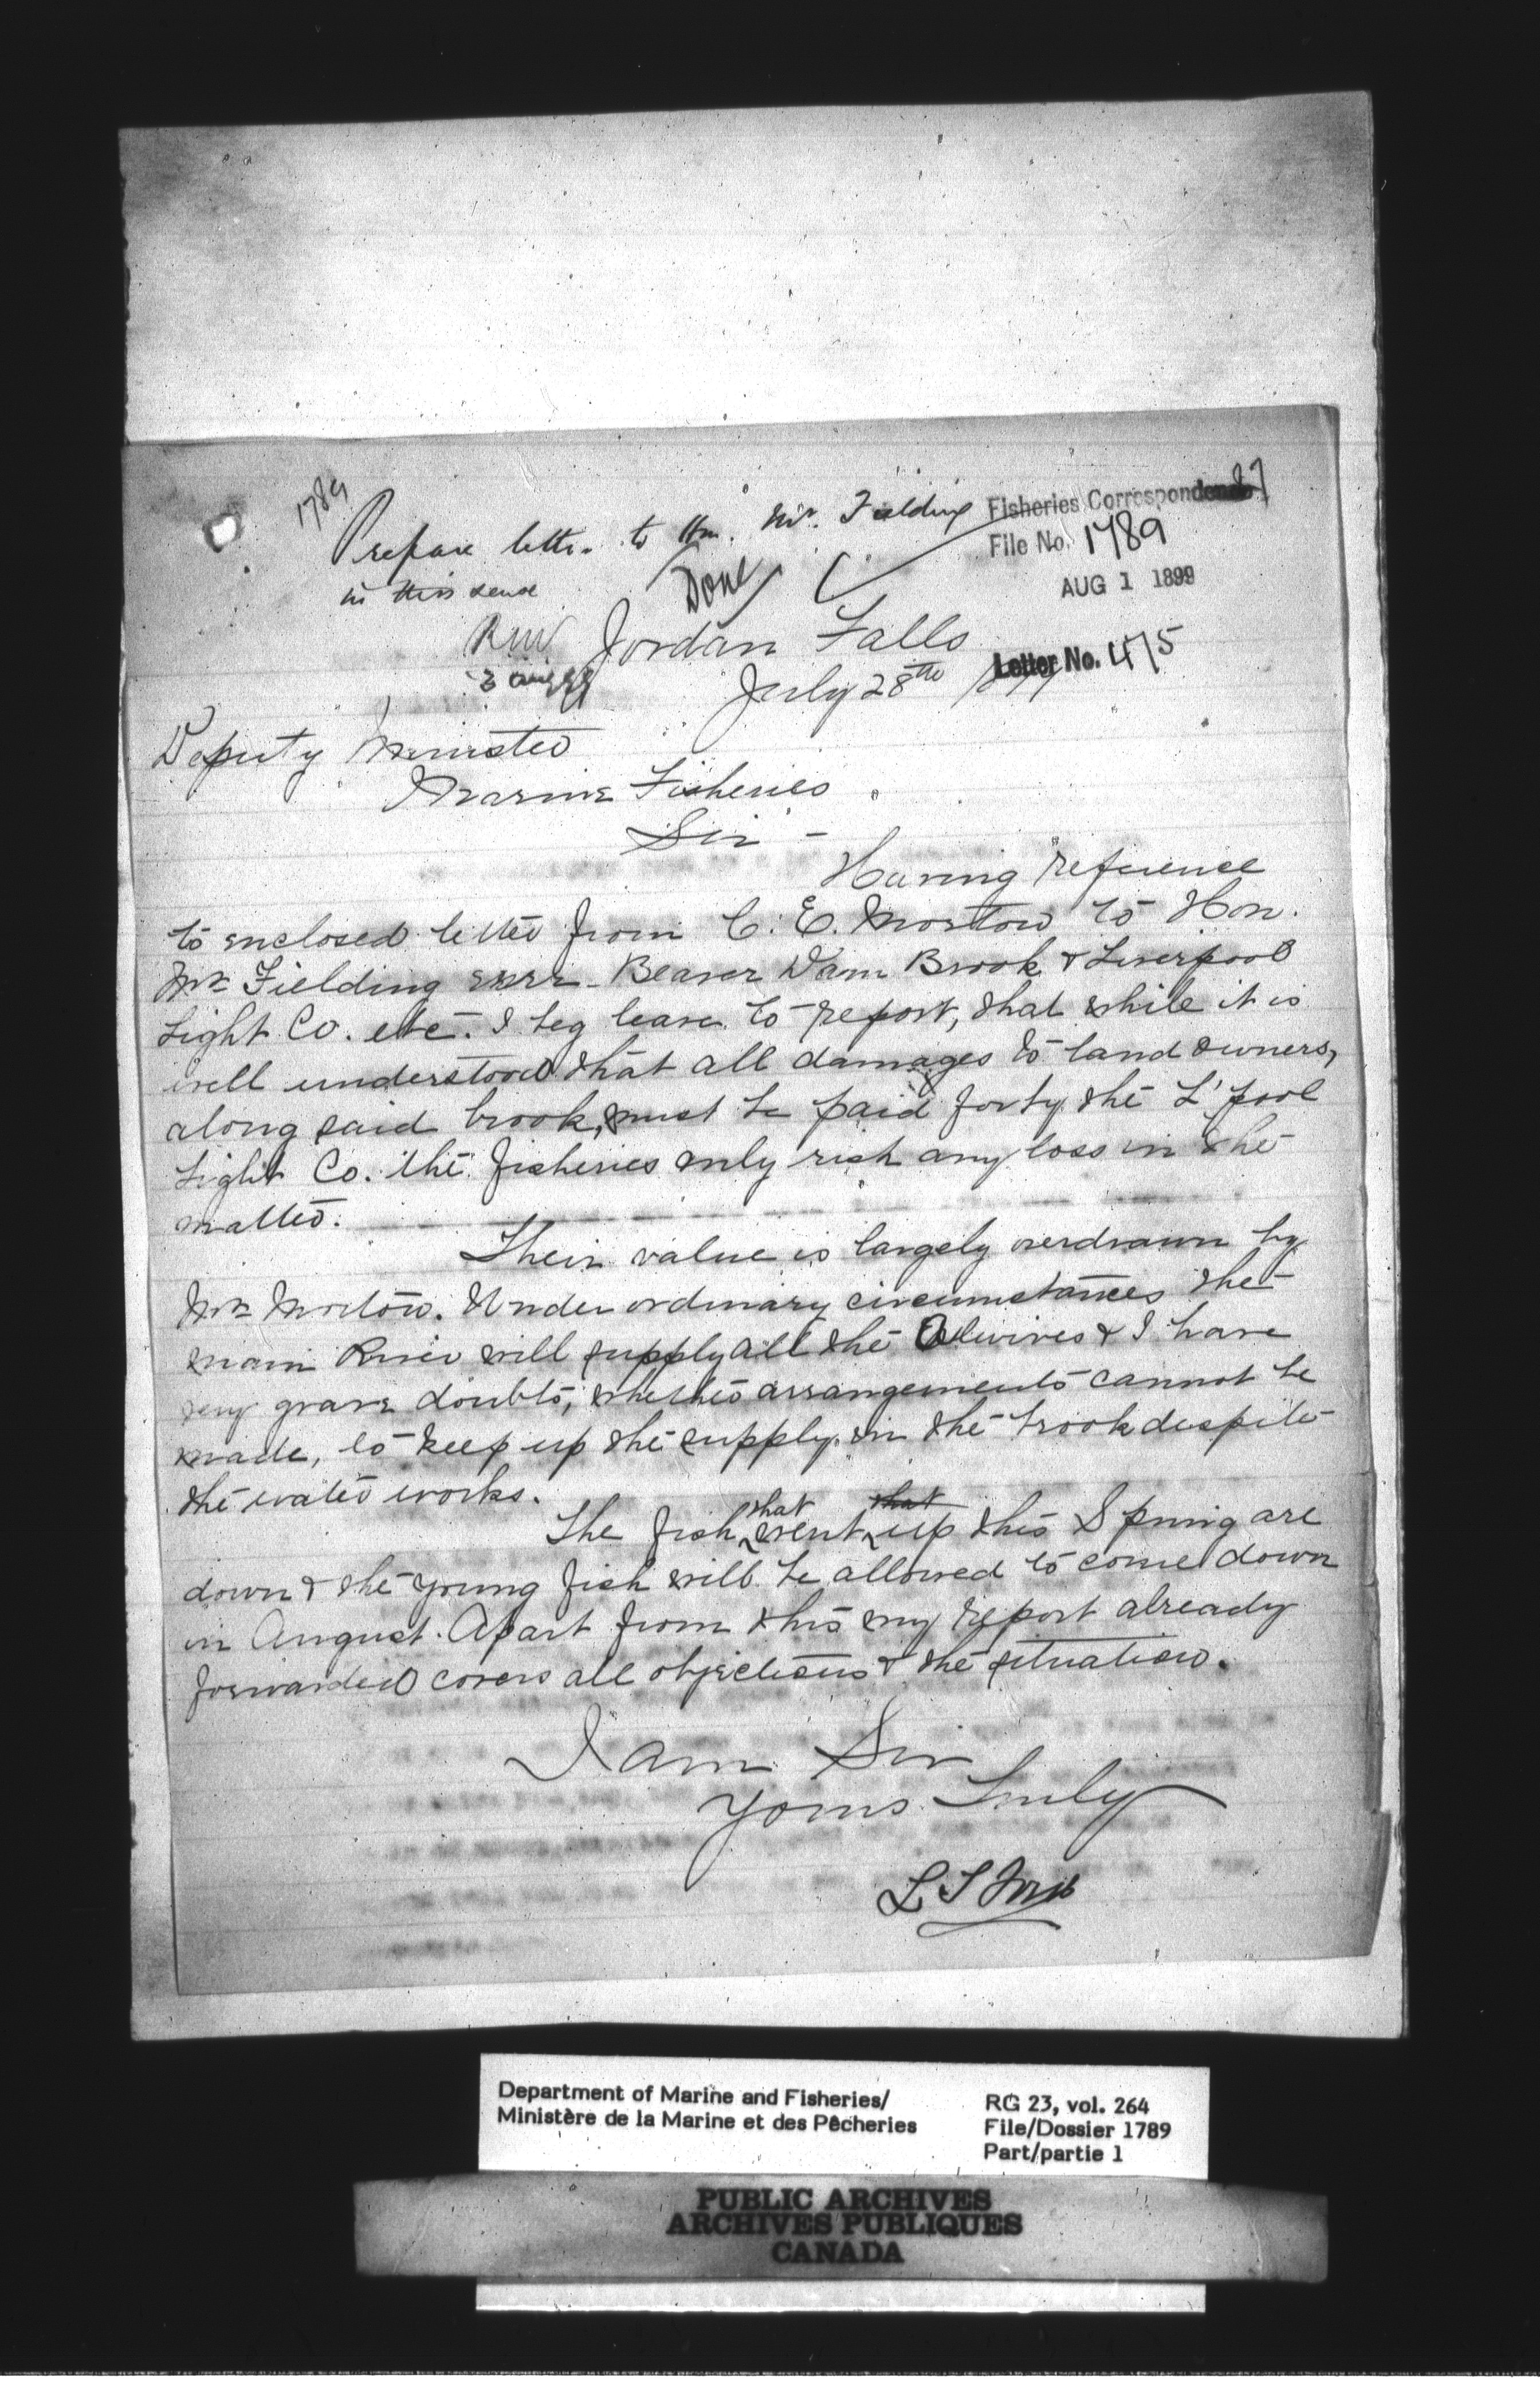 1789
Prepare letter to Hon. Mr. Fielding
in this sense
Done
RW
3 aug 99
Fisheries Correspondence
87
File No. 1789
AUG 1 1899
Letter No. 475
Jordan Falls
July 28th 1899
Deputy Minister
Marine Fisheries
Sir -
Having reference
to enclosed letter from C. E. Morton to Hon.
Mr Fielding Beaver Dam Brook & Liverpool
Light Co. etc. I beg leave to report, that while it is
well understood that all damages to land owners,
along said brook, must be paid for by the L'pool
Light Co. the fisheries only risk any loss in the
matter.
Their value is largely overdrawn by
Mr Morton. Under ordinary circumstances the
main River will supply all the Alwives & I have
very grave doubts, whether arrangements cannot be
made, to keep up the supply in the brook despite
the water works.
The fish that went that up this Spring are
down & the young fish will be allowed to come down
in August. Apart from this my report already
forwarded covers all objections & the situation.
I am Sir
Yours Truly
L S Ford
Department of Marine and Fisheries/
Ministère de la Marine et des Pêcheries
RG 23, vol. 264
File/Dossier 1789
Part/partie 1
PUBLIC ARCHIVES
ARCHIVES PUBLIQUES
CANADA